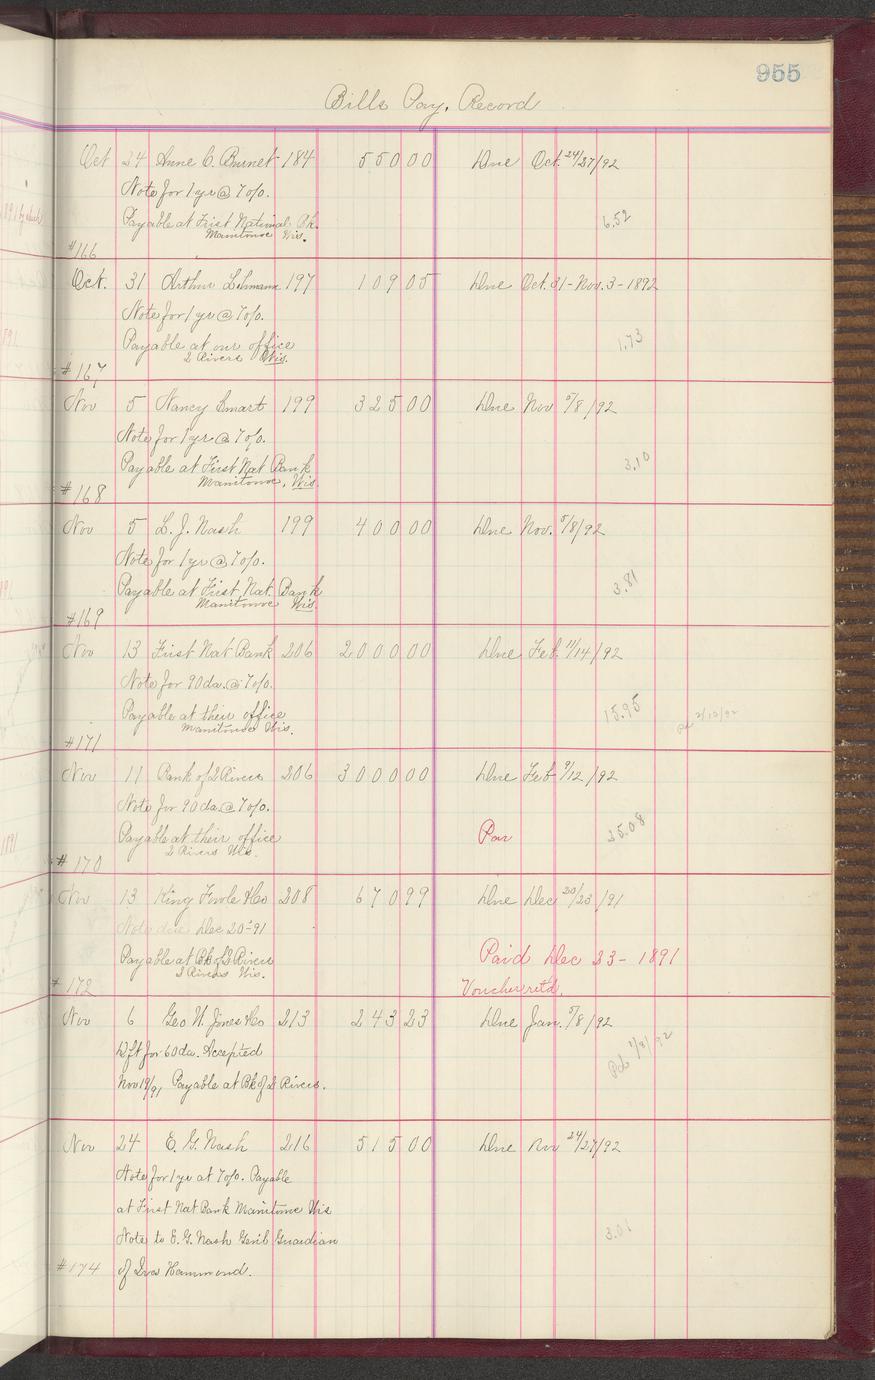 955
Bills Pay. Record
Oct 24 Anne C. Burnet 184 550 00 Due Oct. 24/27/92
Note for 1 yr @ 7 o/o.
Payable at Frist National Bk. 6.52
Manitowoc Wis.
#166
Oct. 31 Arthur Lehmann 197 109 05 Due Oct. 31 - Nov. 3 - 1892
Note for 1 yr @ 7 o/o.
Payable at our office 1.73
2 Rivers Wis.
#167
Nov 5 Nancy Smart 199 325 00 Due Nov 5/8/92
Note for 1 yr @ 7 o/o.
Payable at First Nat Bank 3.10
Manitowoc, Wis.
#168
Nov 5 L. J. Nash 199 400 00 Due Nov. 5/8/92
Note for 1 yr @ 7 o/o.
Payable at First Nat. Bank 3.81
Manitowoc Wis.
#169
Nov 13 First Nat Bank 206 2000 00 Due Feb. 11/14/92
Note for 90 da. @ 7 o/o.
Payable at their office 15.95 Pd 2/13/92
Manitowoc Wis.
#171
Nov 11 Bank of 2 Rivers 206 3000 00 Due Feb 9/12/92
Note for 90 da. @ 7 o/o.
Payable at their office 35.08
2 Rivers Wis.
#170
Nov 13 King Fowle & Co 208 670 99 Due Dec 20/23/91
Note due Dec 20 - 91
Payable at Bk of 2 Rivers Paid Dec 23 - 1891
2 Rivers Wis.
#172 Voucher retd.
Nov 6 Geo W. Jones & Co 213 243 23 Due Jan. 5/8/92
Dft for 60 da. Accepted Pd 1/8/92
Nov 19/91 Payable at Bk of 2 Rivers.
Nov 24 E. G. Nash 216 515 00 Due Nov 24/27/92
Note for 1 yr at 7 o/o. Payable
at First Nat Bank Manitowoc Wis
Note to E. G. Nash Genl Guardian 3.01
#174 of Hammond.